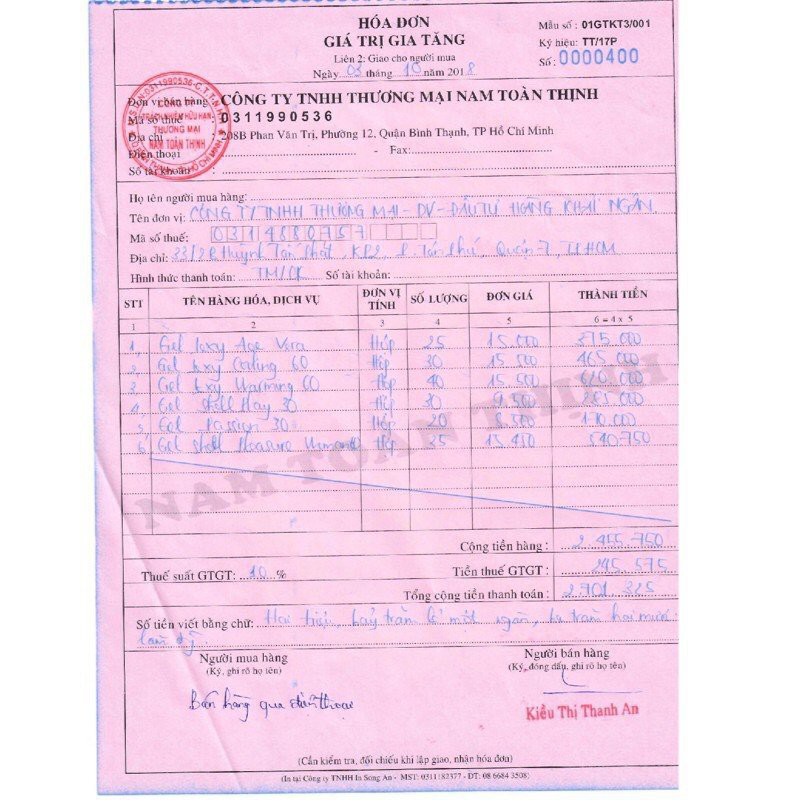 HÓA ĐƠN
GIÁ TRỊ GIA TĂNG
Liên 2: Giao cho người mua
Ngày 03 tháng 10 năm 2018
Mẫu số : 01GTKT3/001
Ký hiệu: TT/17P
Số : 0000400
Đơn vị bán hàng : CÔNG TY TNHH THƯƠNG MẠI NAM TOÀN THỊNH
Mã số thuế : 0311990536
Địa chỉ : 208B Phan Văn Trị, Phường 12, Quận Bình Thạnh, TP Hồ Chí Minh
Điện thoại - Fax:
Số tài khoản :
CÔNG TY
TRÁCH NHIỆM HỮU HẠN
THƯƠNG MẠI
NAM TOÀN THỊNH
Họ tên người mua hàng:
Tên đơn vị: CÔNG TY TNHH THƯƠNG MẠI - DV - ĐẦU TƯ HOÀNG KHAI NGÂN
Mã số thuế: 0314880757
Địa chỉ: Huỳnh Tấn Phát, KP2, P. Tân Phú, Quận 7, Tp HCM
Hình thức thanh toán: TM/CK Số tài khoản:
STT TÊN HÀNG HÓA, DỊCH VỤ ĐƠN VỊ TÍNH SỐ LƯỢNG ĐƠN GIÁ THÀNH TIỀN
1 2 3 4 5 6 = 4 x 5
1 Gel Aloe Vera Hộp 25 15.000 375.000
2 Gel 60 Hộp 30 15.500 465.000
3 Gel Warming 60 Hộp 40 15.500 620.000
4 Gel 30 Hộp 30 9.500 285.000
5 Gel Passion 30 Hộp 20 8.500 170.000
6 Gel Pleasure Hộp 35 15.450 540.750
NAM TOÀN THỊNH
Cộng tiền hàng : 2.455.750
Thuế suất GTGT: 10 % Tiền thuế GTGT : 245.575
Tổng cộng tiền thanh toán : 2.701.325
Số tiền viết bằng chữ: Hai triệu, bảy trăm lẻ một ngàn, ba trăm hai mươi
lăm đ
Người mua hàng
(Ký, ghi rõ họ tên)
Người bán hàng
(Ký, đóng dấu, ghi rõ họ tên)
Bán hàng qua điện thoại
Kiều Thị Thanh An
(Cần kiểm tra, đối chiếu khi lập giao, nhận hóa đơn)
(In tại Công ty TNHH In Song An - MST: 0311182377 - ĐT: 08 6684 3508)